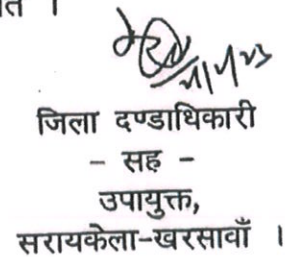 त ।
जिला दण्डाधिकारी
- सह -
उपायुक्त,
सरायकेला-खरसावाँ ।